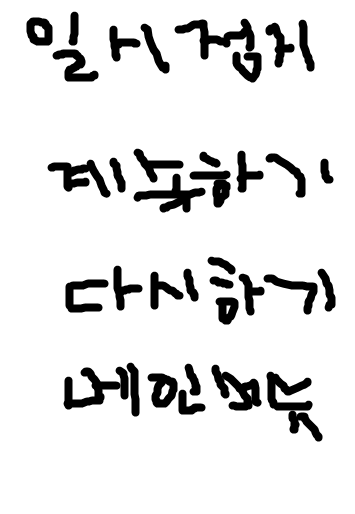 일시정지
계속하기
다시하기
메인메뉴